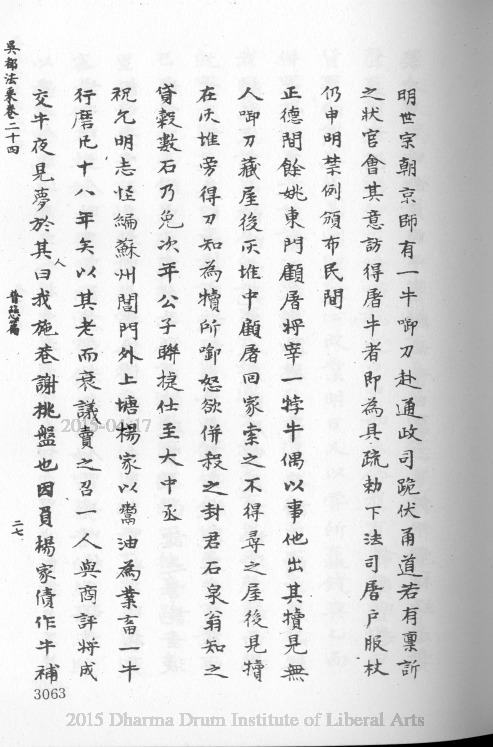 明世宗朝京師有一牛啣刀赴通政司跪伏甬道若有稟訴
之狀官會其意訪得屠牛者即為具疏勅下法司屠户服杖
仍申明禁例頒布民間
正德間餘姚東門顧屠將宰一牸牛偶以事他出其犢見無
人啣刀藏屋後灰堆中顧屠回家索之不得尋之屋後見犢
在灰堆旁得刀知為犢所啣怒欲併殺之封君石泉翁知之
貸穀數石乃免次年公子聯捷仕至大中丞
祝允明志怪編蘇州閶門外上塘楊家以鬻油為業畜一牛
行磨凡十八年矣以其老而衰議賣之召一人與商評將成
交牛夜見夢於其人曰我施巷謝挑盤也因負楊家債作牛補
吳都法乘卷二十四
普慈篇
二七
3063
2015-04-17
2015 Dharma Drum Institute of Liberal Arts